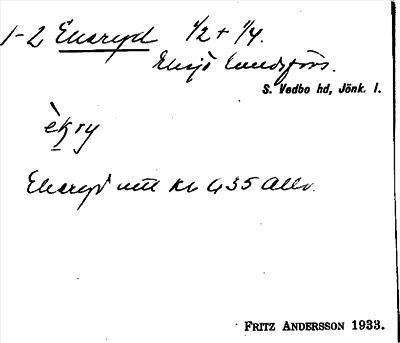 1-2 Ekaryd 1/2 + 1/4.
Eksjö landsförs.
S. Vedbo hd, Jönk. l.
èkry
Ekaryd
FRITZ ANDERSSON 1933.